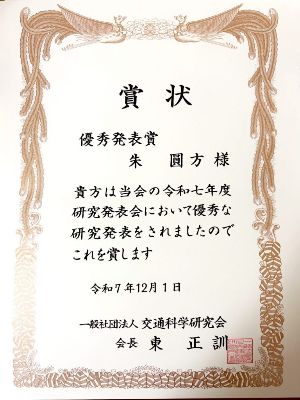 賞状
優秀発表賞
朱 圓方 様
貴方は当会の令和七年度
研究発表会において優秀な
研究発表をされましたので
これを賞します
令和7年12月1日
一般社団法人 交通科学研究会
会長 東 正訓